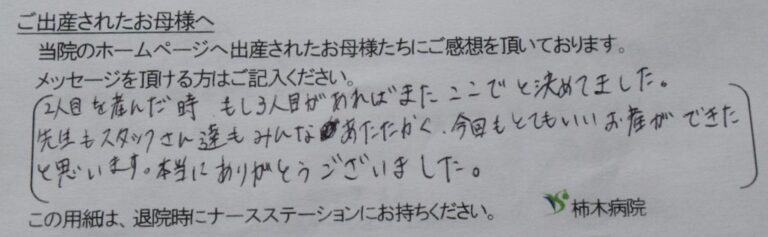 ご出産されたお母様へ
当院のホームページへ出産されたお母様たちにご感想を頂いております。
メッセージを頂ける方はご記入ください。
2人目を産んだ時 もし3人目があればまたここでと決めてました。
先生もスタッフさん達もみんなあたたかく、今回もとてもいいお産ができた
と思います。本当にありがとうございました。
この用紙は、退院時にナースステーションにお持ちください。
柿木病院